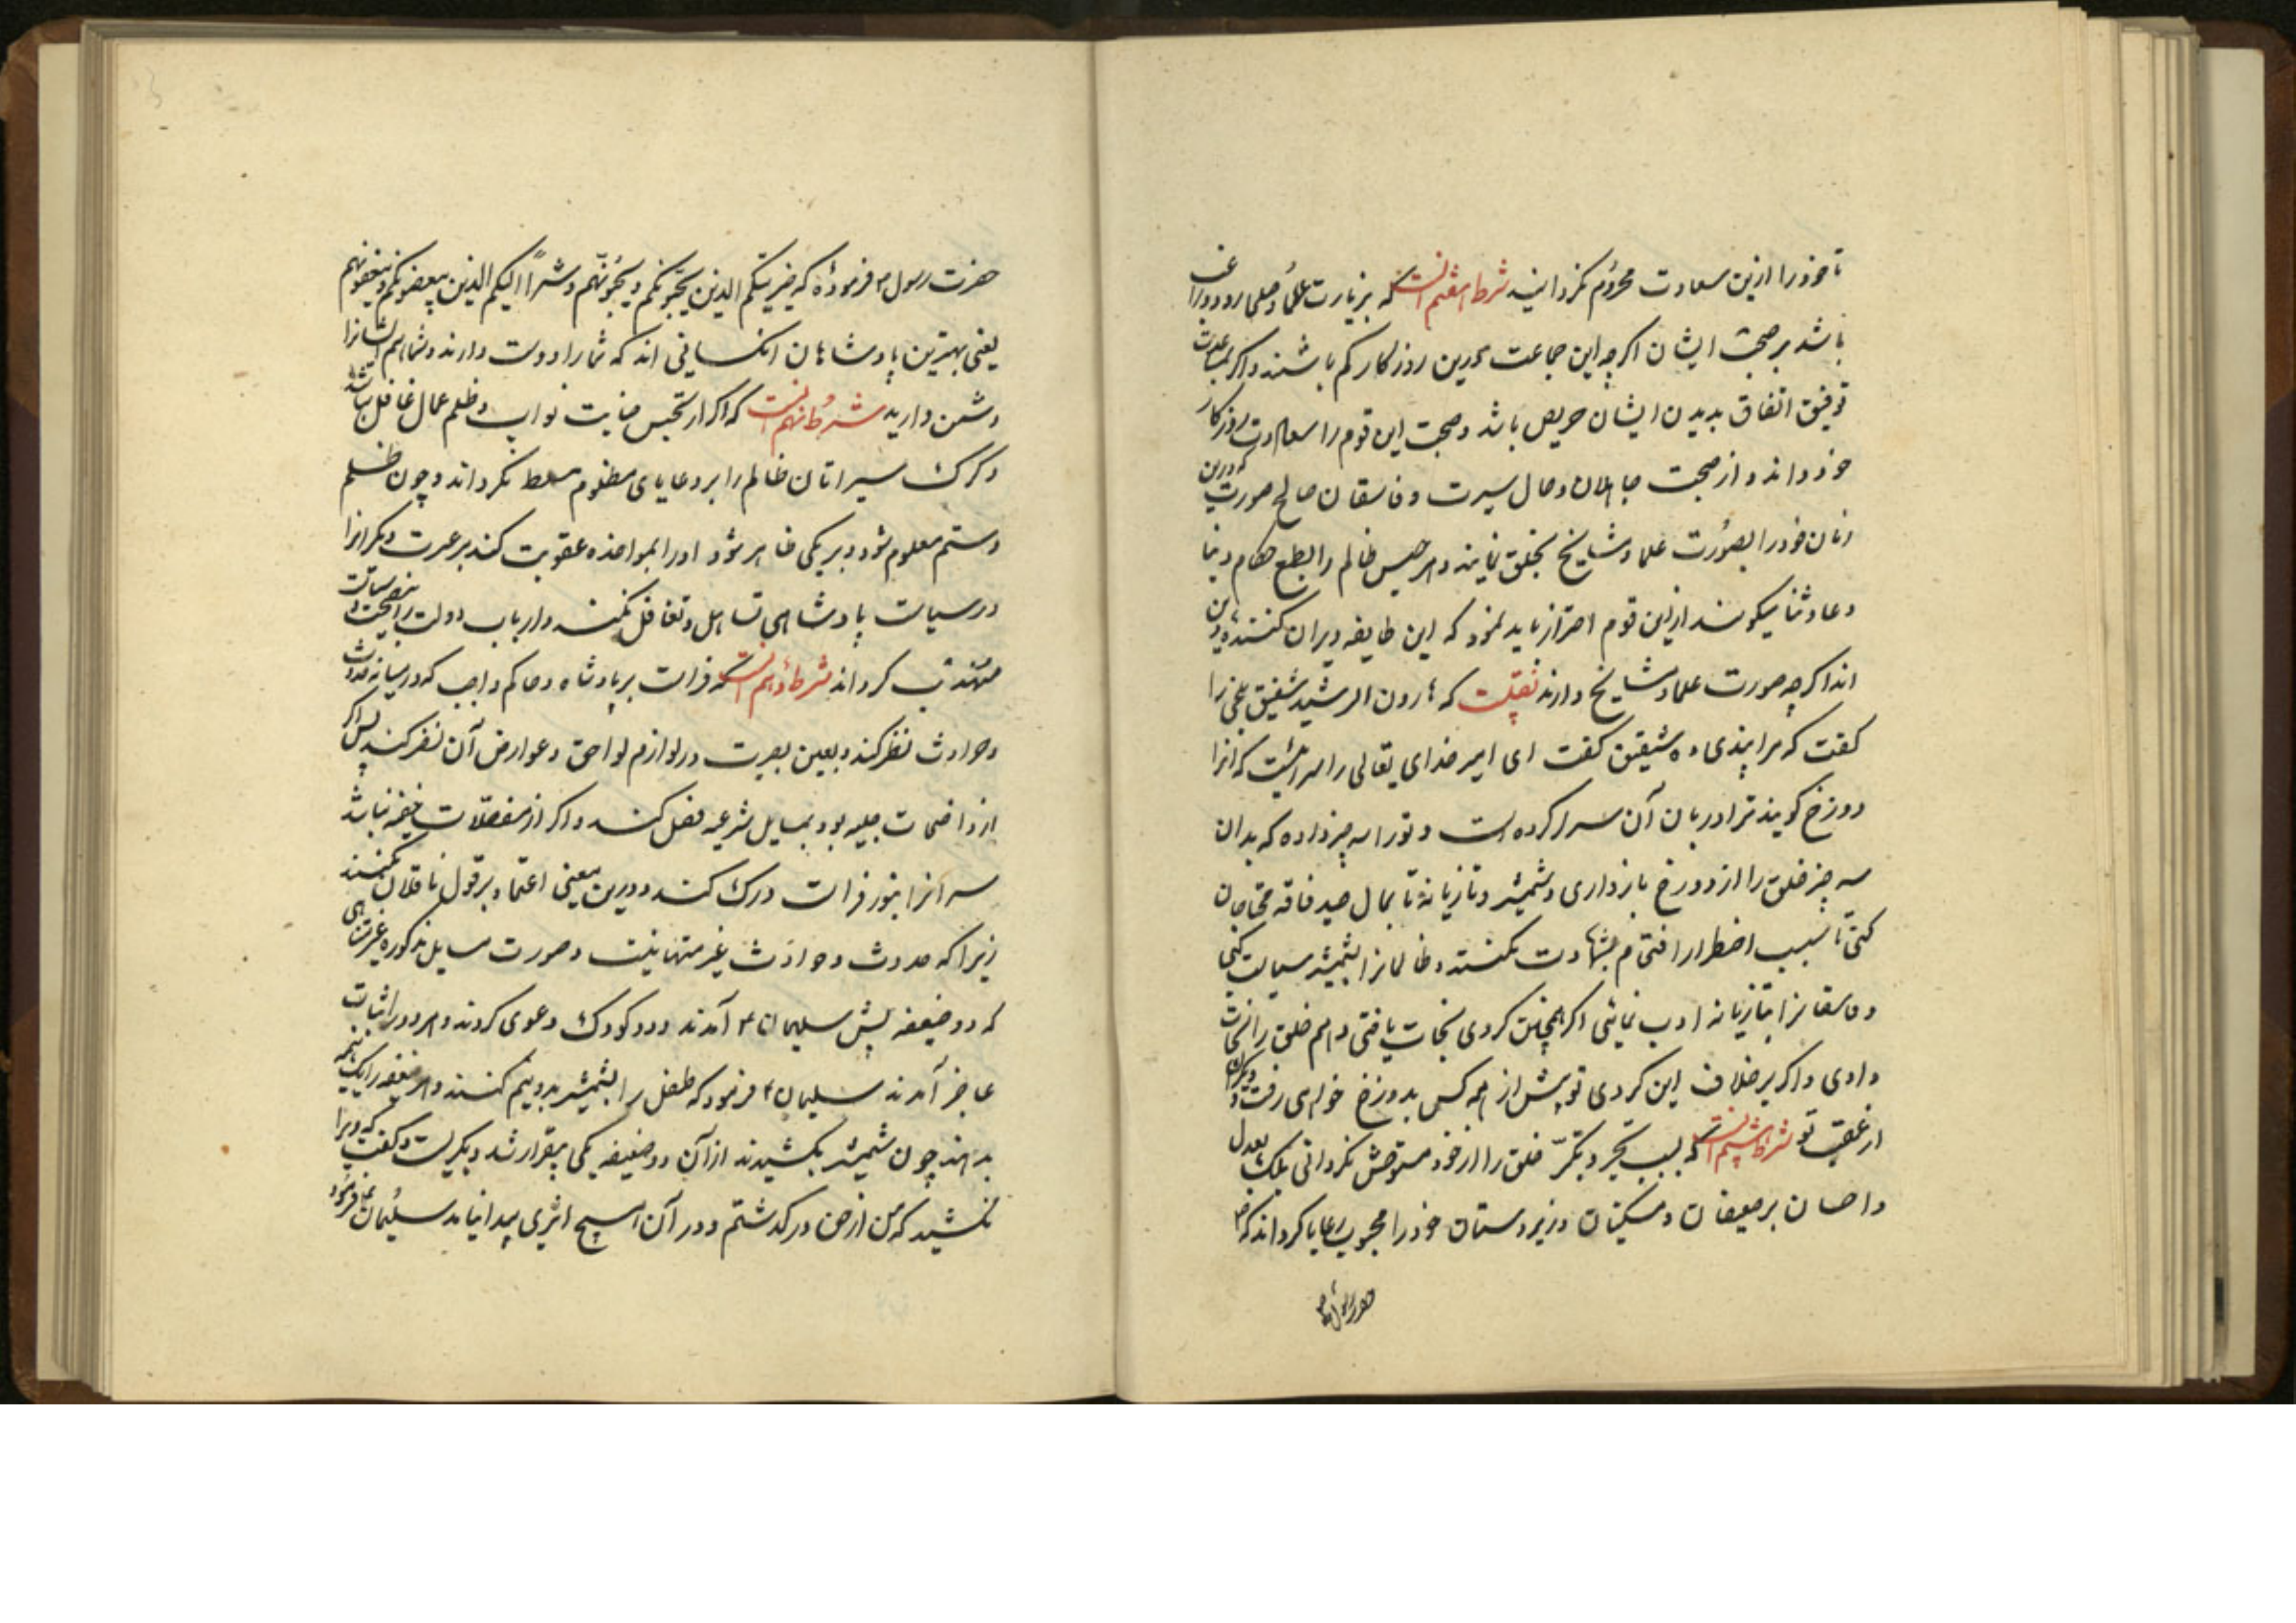 تا خود را ازین سعادت محروم نکرداند شرط هفتم آنست که بزیارت علما و صلحا رود و راغب
باشد بر صحبت ایشان اکرچه این جماعت درین روزکار کم باشند و اکر بمساعدت
توفیق اتفاق بدیدن ایشان حریص باشد و صحبت این قوم را سعادت روزکار
خود داند و از صحبت جاهلان و حال سیرت و فاسقان صالح صورت که درین
زمان خود را بصورت علما و مشایخ بخلق نمایند و هر خسیس ظالم را بطمع حطام دنیا
دعا و ثنا میکویند ازین قوم احتراز باید نمود که این طایفه ویران کننده دین
اند اکرچه صورت علما و مشایخ دارند نقلست که هارون الرشید شقیق بلخی را
کفت که مرا پندی ده شقیق کفت ای امیر خدای تعالی را سرائیست که آنرا
دوزخ کویند ترا دربان آن سرا کرده است و تو را سه چیز داده که بدان
سه چیز خلق را از دوزخ بازداری و شمشیر و تازیانه تا بمال صید فاقه محتاجان
کنی تا بسبب اضطرار اقتحام بشبهات نکنند و ظالمانرا بشمشیر سیاست کنی
و فاسقانرا بتازیانه ادب نمائی اکر همچنین کردی نجات یافتی و هم خلق را نجات
دادی و اکر برخلاف این کردی تو پیش از همه کس بدوزخ خواهی رفت و دیکران
از عقب تو شرط هشتم آنست که بسبب تجبر و تکبر خلق را از خود مستوحش نکردانی بلکه بعدل
و احسان بر ضعیفان و مسکینان و زیردستان خود را محبوب رعایا کرداند که
حضرت رسول
حضرت رسول فرموده که خیر ائمتکم الذین یحبونکم و یحبونهم و شر ائمتکم الذین یبغضونکم و یبغضونهم
یعنی بهترین پادشاهان آنکسانی اند که شما را دوست دارند و شما هم ایشانرا
دشمن دارید شرط نهم آنست که اکر از تجسس خیانت نواب و ظلم عمال غافل نباشد
و کرک سیرانان ظالم را بر رعایای مظلوم مسلط نکرداند و چون ظلم
و ستم معلوم شود و بر یکی ظاهر شود او را بمواخذه عقوبت کند بر عبرت دیکرانرا
در سیاست پادشاهی تساهل و تغافل نکند و ارباب دولت را بنصیحت و سیاست
مهذب کرداند شرط دهم آنست که فراست بر پادشاه و حاکم واجب که در میانه حدوث
و حوادث نظر کند و بعین بصیرت در لوازم لواحق و عوارض آن نظر کند پس اکر
از واضحات جلیه بود بمسایل شرعیه فصل کند و اکر از معضلات خفیه باشد
سر آنرا بنور فراست درک کند و درین معنی اعتماد بر قول ناقلان نکنند
زیرا که حدوث و حوادث غیر متناهیست و صورت مسایل مذکوره غیر متناهی
که دو ضعیفه پیش سلیمان آمدند و دو کودک دعوی کردند و هر دو در اثبات
عاجز آمدند سلیمان فرمود که طفل را بشمشیر بدو نیم کنند و هر ضعیفه را یک نیمه
بدهند چون شمشیر بکشیدند از آن دو ضعیفه یکی بیقرار شد و بکریست و کفت که ویرا
نکشید که من از حق درکذشتم و در آن هیچ اثری پیدا نیامد سلیمان فرمود